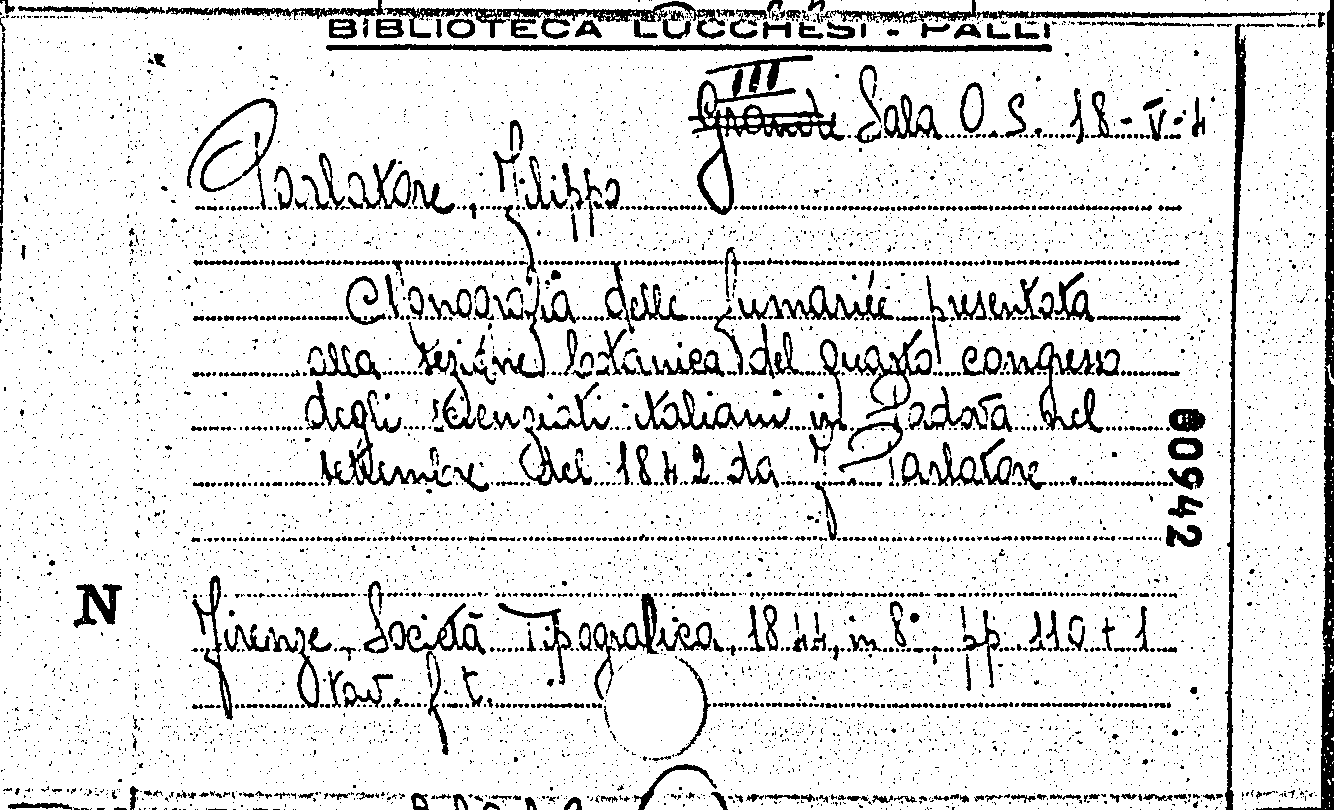 BIBLIOTECA LUCCHESI - PALLI
III
Grande Sala O.S. 18-V-4
Parlatore, Filippo
Monografia delle fumariée presentata
alla sezione botanica del quarto congresso
degli scienziati italiani in Padova nel
settembre del 1842 da F. Parlatore.
00942
N
Firenze, Società Tipografica, 1844, in 8°, pp. 110 + 1
tav. f. t.